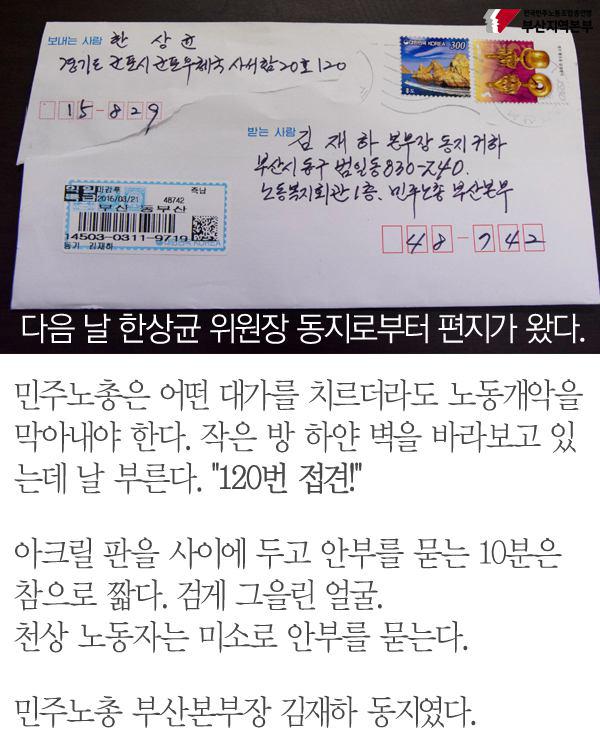 전국민주노동조합총연맹
부산지역본부
보내는 사람 한상균
경기도 군포시 군포우체국 사서함 20호 120
15-829
대한민국 KOREA 300
받는 사람 김재하 본부장 동지 귀하
부산시 동구 범일동 830-240.
노동복지회관 1층. 민주노총 부산본부
48-742
미감투 즉납
2016/03/21 48742
부산 동부산
14503-0311-9719
등기 김재하
다음 날 한상균 위원장 동지로부터 편지가 왔다.
민주노총은 어떤 대가를 치르더라도 노동개악을
막아내야 한다. 작은 방 하얀 벽을 바라보고 있
는데 날 부른다. "120번 접견!"
아크릴 판을 사이에 두고 안부를 묻는 10분은
참으로 짧다. 검게 그을린 얼굴.
천상 노동자는 미소로 안부를 묻는다.
민주노총 부산본부장 김재하 동지였다.